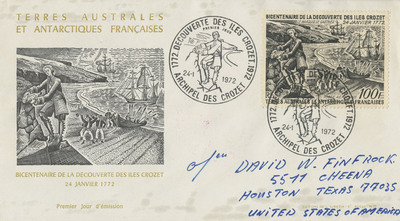 TERRES AUSTRALES
ET ANTARCTIQUES FRANÇAISES
BICENTENAIRE DE LA DECOUVERTE DES ILES CROZET
24 JANVIER 1772
Premier jour d'émission
1772. DECOUVERTE DES ILES CROZET. 1972
PREMIER JOUR
24-1 1972
ARCHIPEL DES CROZET
BICENTENAIRE DE LA DECOUVERTE DES ILES CROZET
24 JANVIER 1772
100F
TERRES AUSTRALES ET ANTARCTIQUES FRANÇAISES
24-1 1972
ARCHIPEL DES CROZET
open
DAVID W. FINFROCK
5511 CHEENA
HOUSTON TEXAS 77035
UNITED STATES OF AMERICA